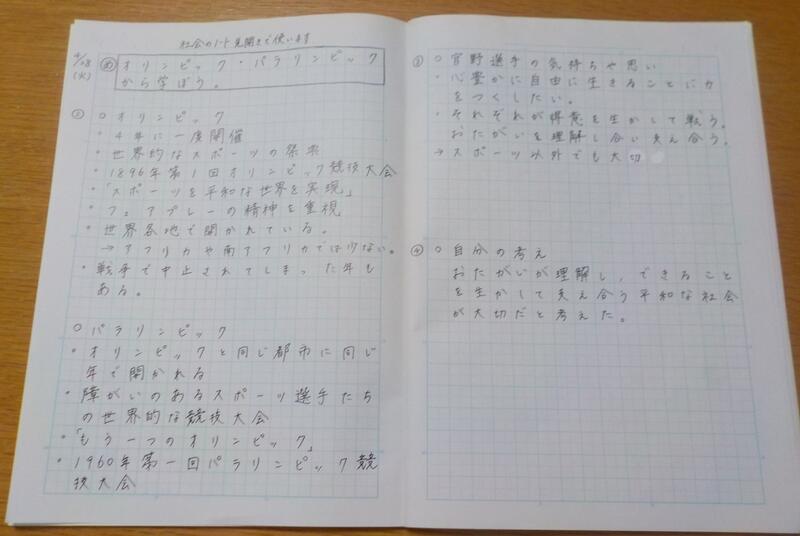 社会のノート見開きで使います
4/28
(火)
め オリンピック・パラリンピック
から学ぼう。
② ○オリンピック
・4年に一度開催
・世界的なスポーツの祭典
・1896年第1回オリンピック競技大会
・「スポーツを平和な世界を実現」
・フェアプレーの精神を重視
・世界各地で開かれている。
→アフリカや南アフリカでは少ない。
・戦争で中止されてしまった年も
ある。
○パラリンピック
・オリンピックと同じ都市に同じ
年で開かれる
・障がいのあるスポーツ選手たち
の世界的な競技大会
・「もう一つのオリンピック」
・1960年第一回パラリンピック競
技大会
③ ○官野選手の気持ちや思い
・心豊かに自由に生きることに力
をつくしたい。
・それぞれが得意を生かして戦う。
おたがいを理解し合い支え合う。
→スポーツ以外でも大切
④ ○自分の考え
おたがいが理解し、できること
を生かして支え合う平和な社会
が大切だと考えた。